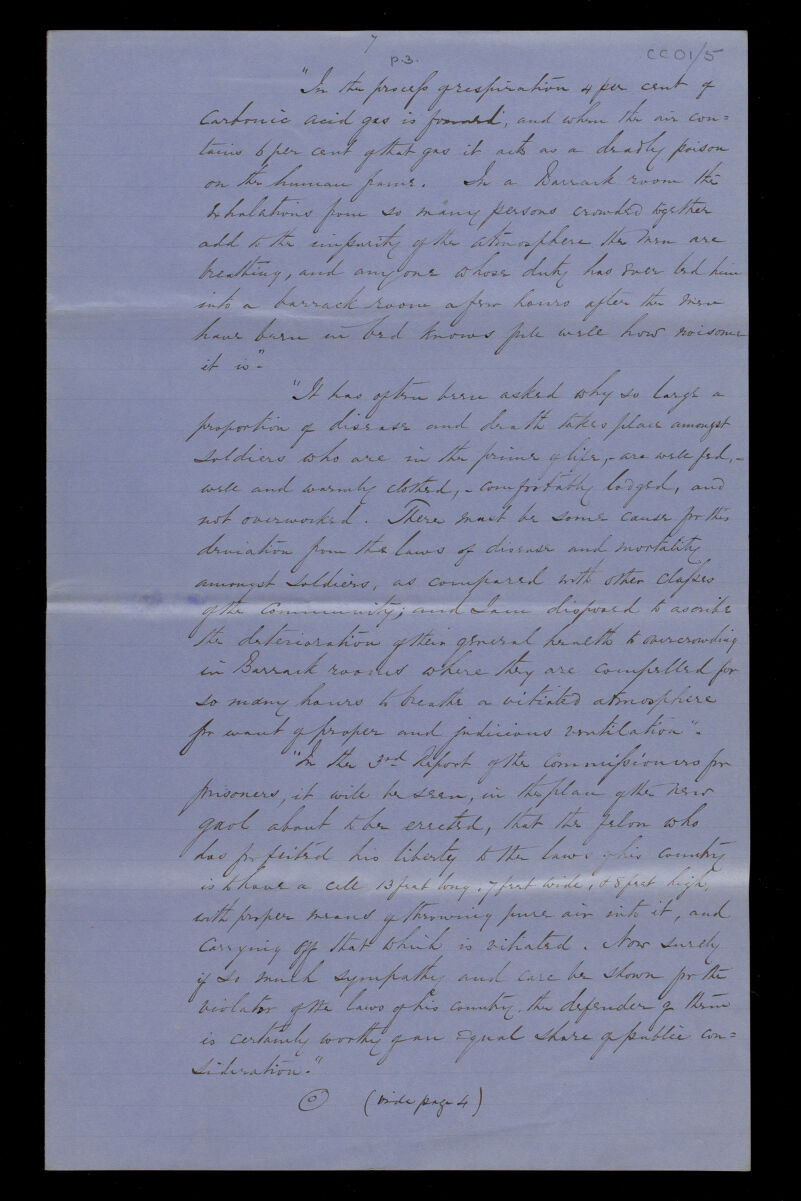 7
p.3.
CC01/5
"In the process of respiration 4 per cent of
Carbonic acid gas is formed, and when the air con=
tains 6 per cent of that gas it acts as a deadly poison
on the human frame. In a Barrack room the
Exhalations from so many persons crowded together
add to the impurity of the atmosphere the Men are
breathing, and any one whose duty has ever led him
into a barrack room a few hours after the Men
have been in bed knows full well how noisome
it is"-
"It has often been asked why so large a
proportion of disease and death takes place amongst
soldiers who are in the prime of life,- are well fed,-
well and warmly clothed,- comfortably lodged, and
not overworked. There must be some cause for this
deviation from the laws of disease and mortality
amongst soldiers, as compared with other Classes
of the Community; and I am disposed to ascribe
the deterioration of their general health to overcrowding
in Barrack rooms where they are compelled for
so many hours to breathe a vitiated atmosphere
for want of proper and judicious ventilation"-
"In the 3rd Report of the Commissioners for
prisoners, it will be seen, in the plan of the new
gaol about to be erected, that the felon who
has forfeited his liberty to the laws of his Country
is to have a cell 13 feet long, 7 feet wide, & 8 feet high,
with proper means of throwing pure air into it, and
Carrying off that which is vitiated. Now surely
if so much sympathy and care be shown for the
violator of the laws of his country, the defender of them
is certainly worthy of an Equal share of public con=
sideration."
(vide page 4)